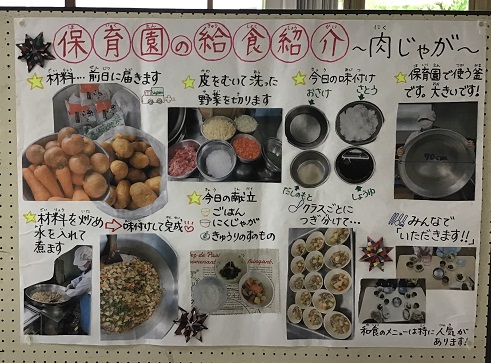 保育園の給食紹介～肉じゃが～
材料…前日に届きます
皮をむいて洗った
野菜を切ります
今日の味付け
おさけ
さとう
だしのもと
しょうゆ
保育園で使う釜
です。大きいです！
70cm
材料を炒め
水を入れて
煮ます
味付けして完成
今日の献立
ごはん
にくじゃが
きゅうりのすのもの
クラスごとに
つぎ分けて…
みんなで
「いただきます！！」
和食のメニューは特に人気が
あります！